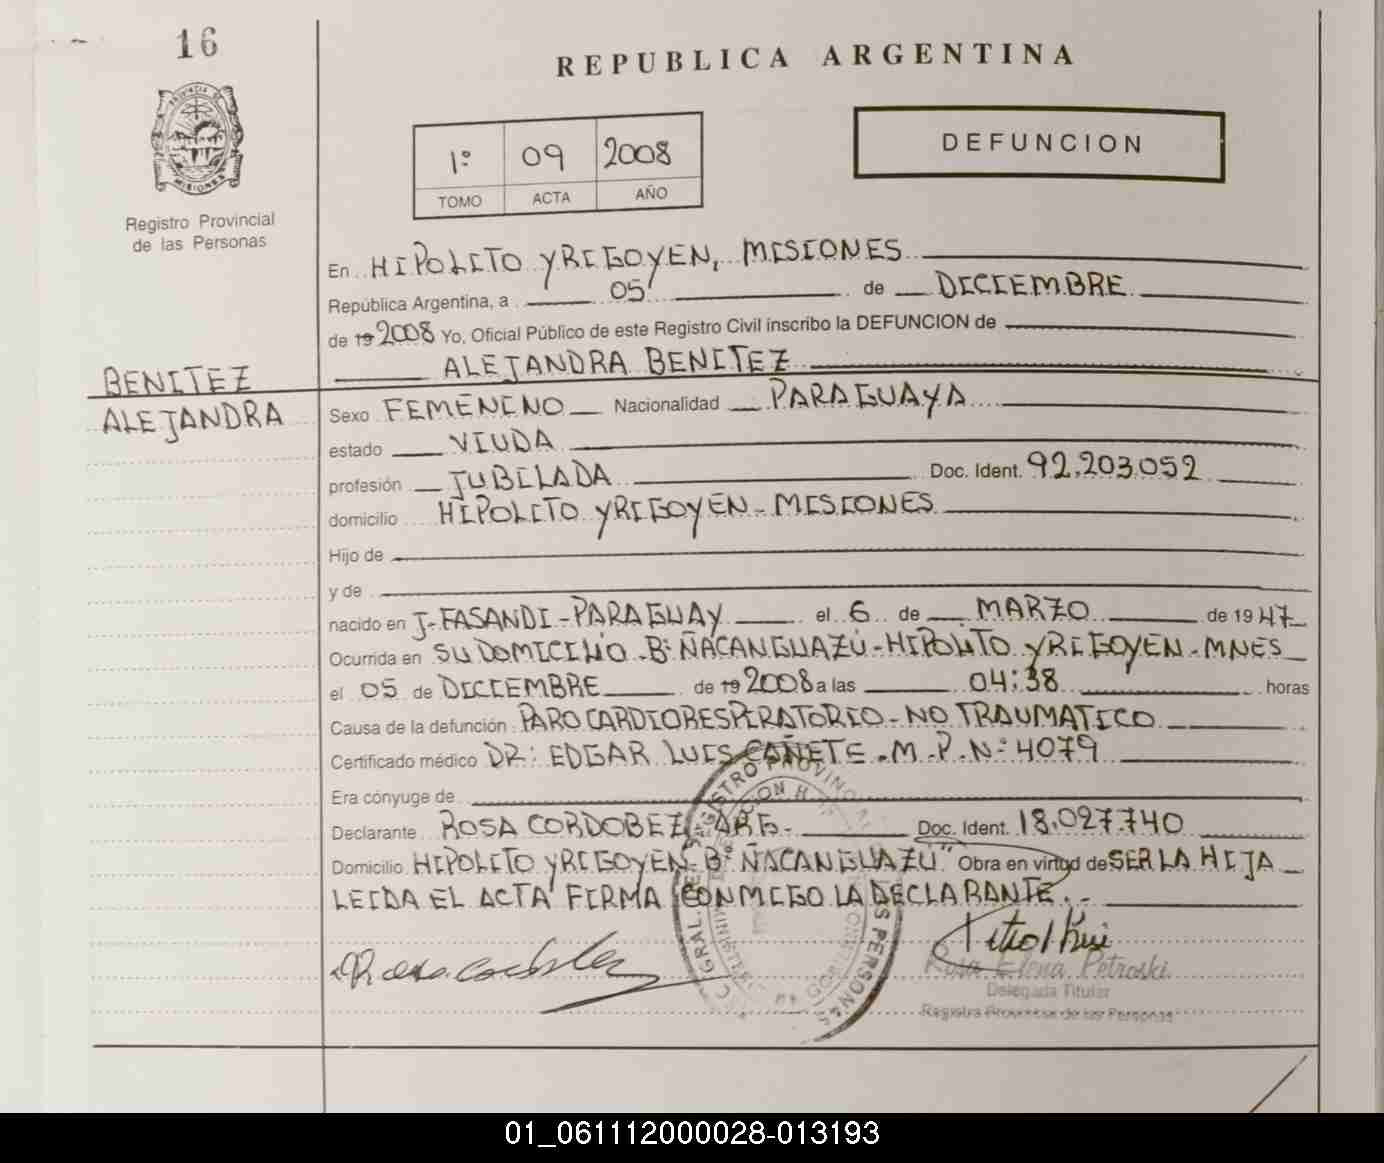 16
REPUBLICA ARGENTINA
PROVINCIA DE
MISIONES
Registro Provincial
de las Personas
1º 09 2008
TOMO ACTA AÑO
DEFUNCION
En HIPOLITO YRIGOYEN, MISIONES
República Argentina, a 05 de DICIEMBRE
de 19 2008 Yo, Oficial Público de este Registro Civil inscribo la DEFUNCION de
ALEJANDRA BENITEZ
BENITEZ
ALEJANDRA
Sexo FEMENINO Nacionalidad PARAGUAYA
estado VIUDA
profesión JUBILADA Doc. Ident. 92.203.052
domicilio HIPOLITO YRIGOYEN - MISIONES
Hijo de
y de
nacido en J-FASANDI-PARAGUAY el 6 de MARZO de 1947
Ocurrida en SU DOMICILIO - Bº ÑACANGUAZÚ - HIPOLITO YRIGOYEN - MNES
el 05 de DICIEMBRE de 19 2008 a las 04:38 horas
Causa de la defunción PARO CARDIORESPIRATORIO - NO TRAUMATICO
Certificado médico DR: EDGAR LUIS CAÑETE - M.P.Nº 4079
Era cónyuge de
Declarante ROSA CORDOBEZ, ARG. Doc. Ident. 18.027.740
Domicilio HIPOLITO YRIGOYEN - Bº ÑACANGUAZÚ" Obra en virtud de SER LA HIJA
LEIDA EL ACTA FIRMA CONMIGO LA DECLARANTE.-
Rosa Cordobez
Rosa Elena Petroski
Delegada Titular
Registro Provincial de las Personas
01_061112000028-013193